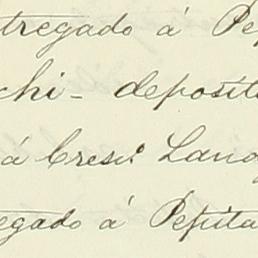 tregado á Pep
chi- deposit
á Cresc.º Lang
egado á Pepita